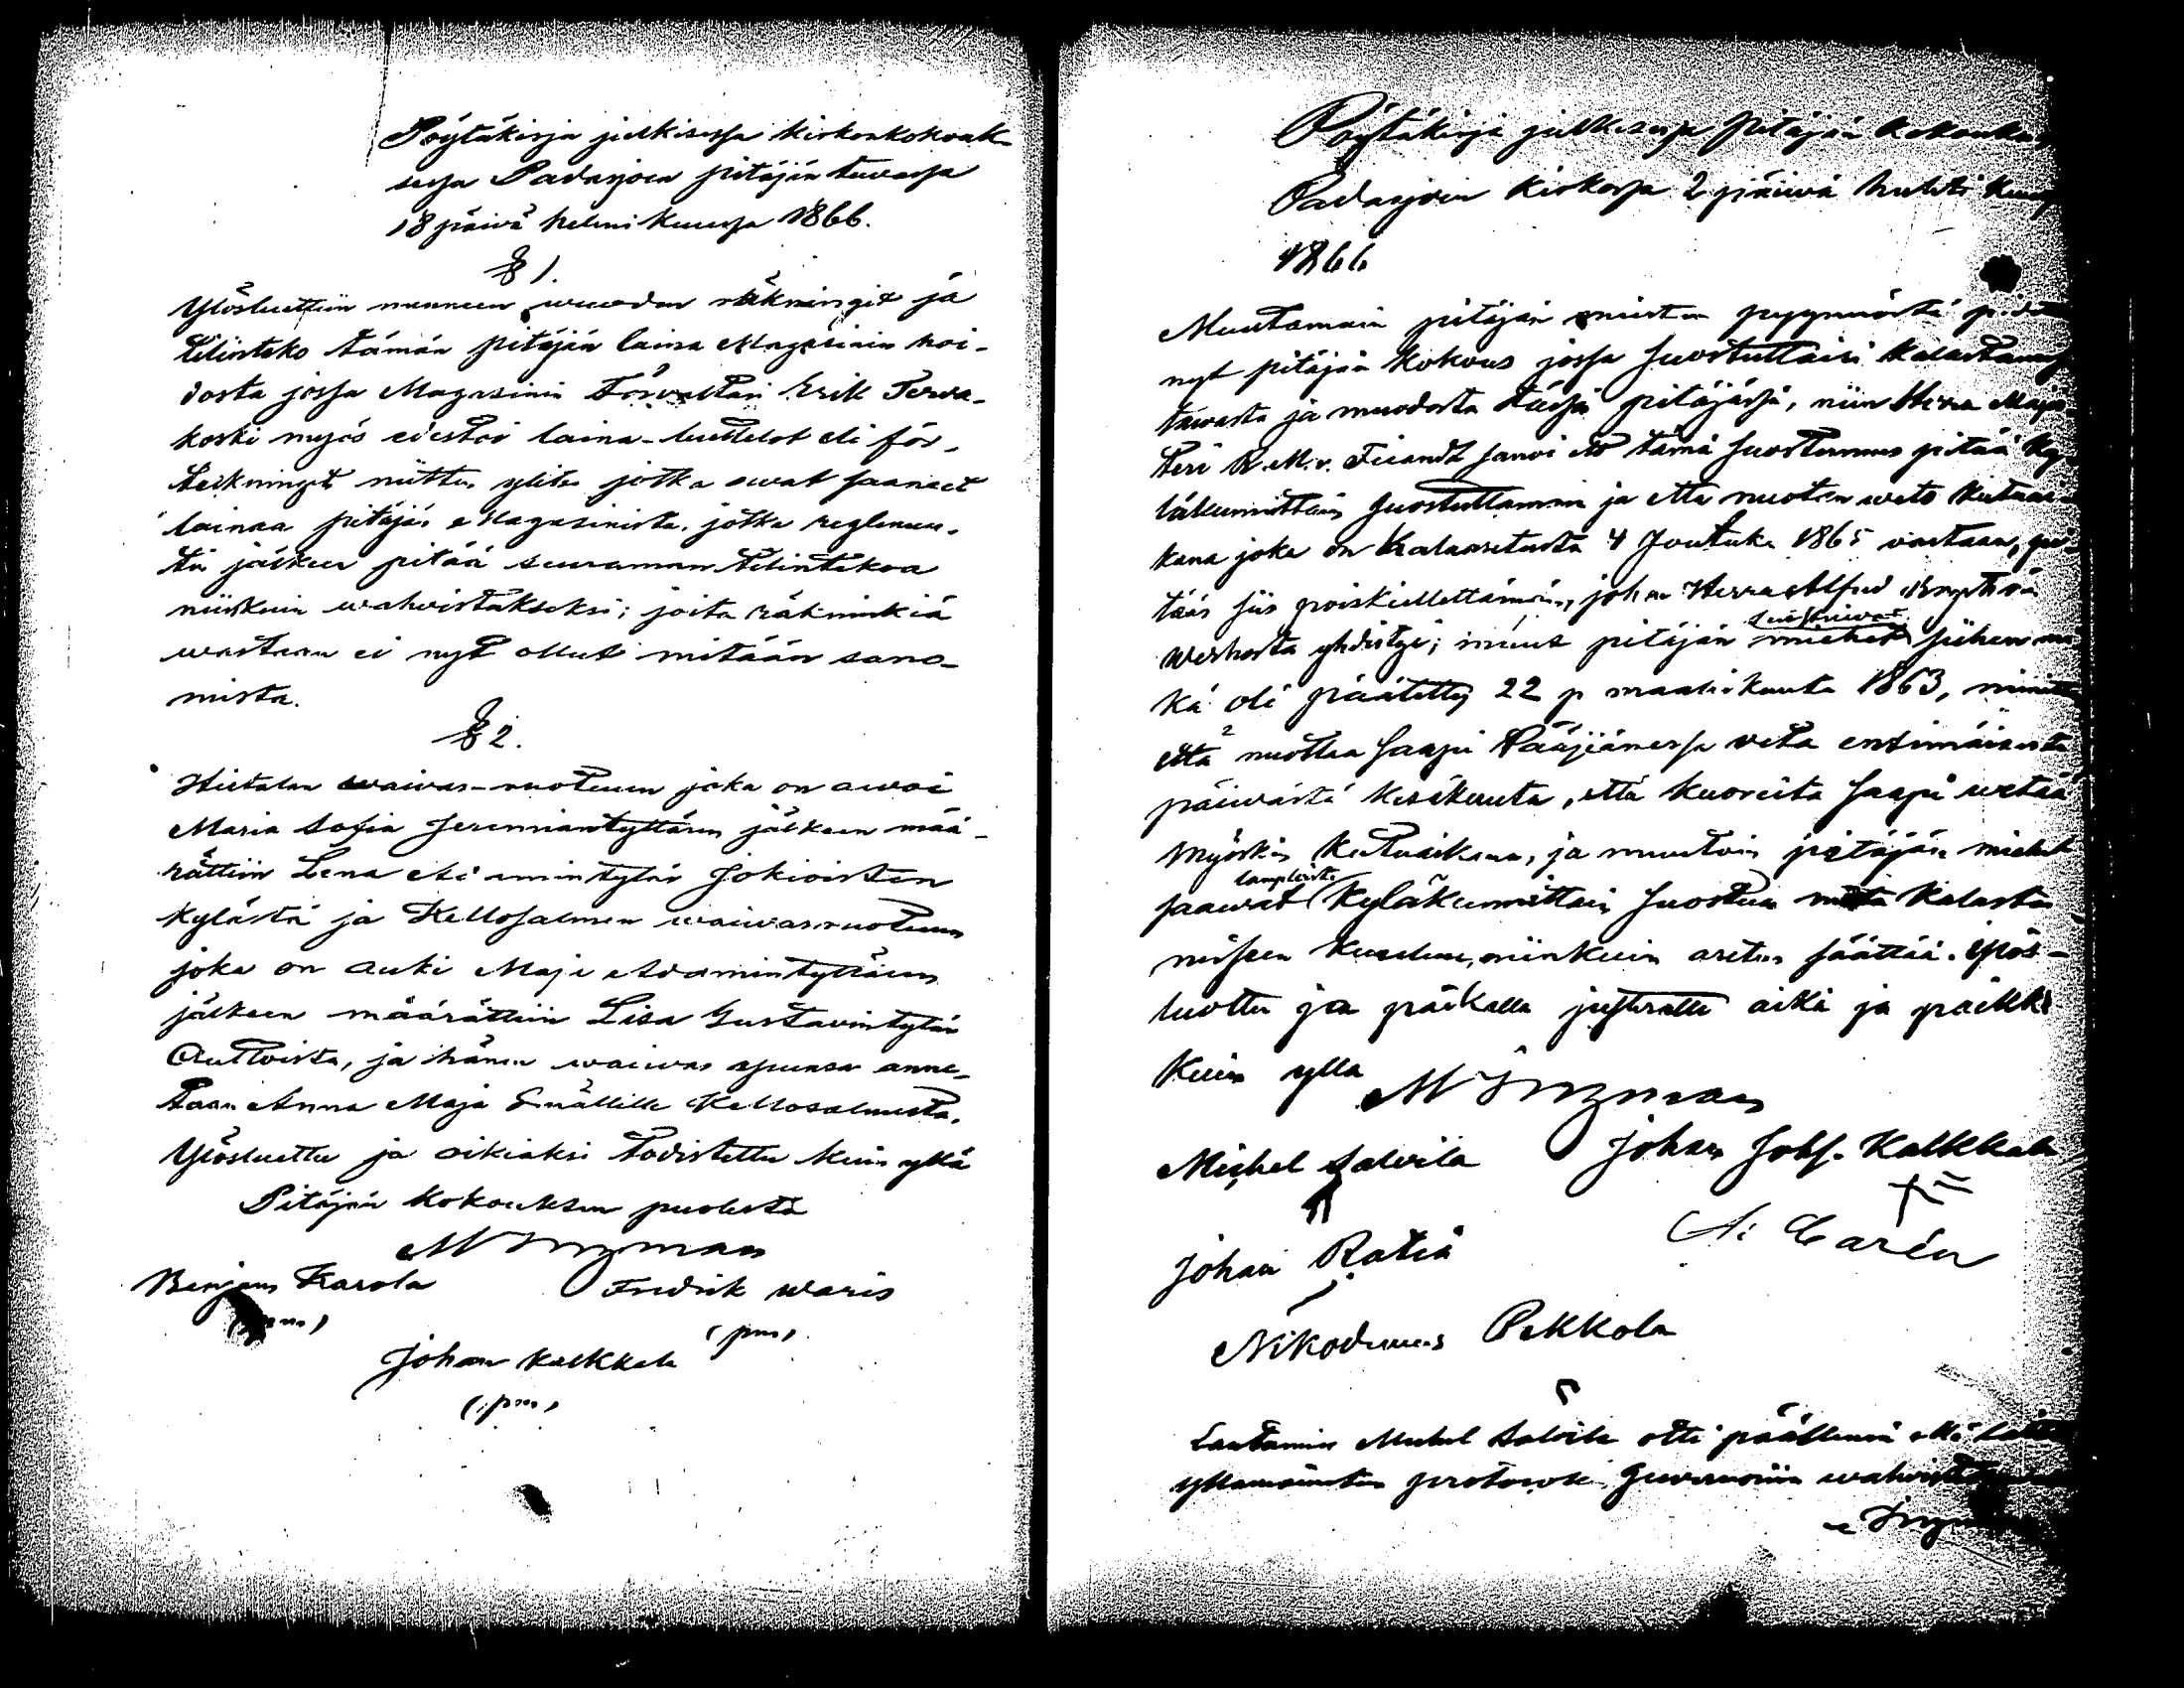 Pöytäkirja julkisessa kirkonkokouk-
sessa Padasjoen pitäjän tuvassa
18 päivä helmi kuussa 1866.
§ 1.
Ylösluettiin menneen wuoden räkningit ja
tilinteko tämän pitäjän laina Magasinin hoi-
dosta jossa Magasinin Förvaltari Erik Terva-
koski myös edestoi laina-luettelot eli för-
teikningit niitten ylitse jotka owat saaneet
lainaa pitäjän Magasinista, jotka reglemen-
tin jälkeen pitää seuraman tilintekoa
niinkuin wahvistukseksi; joita räkninkiä
wastaan ei nyt ollut mitään sano-
mista.
§ 2.
Hietalan waivas-ruotuun joka on awoi
Maria Sofia Jeremiantyttären jälkeen mää-
rättiin Lena tytär Jokioisten
kylästä ja Kellosalmen waivasruotuun
joka on auki Maja Adamintyttären
jälkeen määrättiin Lisa Gustavintytär
Auttoista, ja hänen waivas apunsa anne-
taan Anna Maja Snällille Kellosalmesta.
Ylösluettu ja oikiaksi todistettu kuin yllä
Pitäjän kokouksen puolesta
M Ingman
Benjam Karola Fredrik Waris
(pm)
Johan Kalkkola
(pm)
Pöytäkirja julkisessa pitäjän
Padasjoen kirkossa 2 päivä huhti
1866
Muutamain pitäjän miesten pyynnöstä
nyt pitäjän kokous jossa suostuttaisi
tawasta ja muodosta tässä pitäjässä, niin Herra
R. M. v. Fieandt sanoi että tämä suostumus pitää ky-
läkunnittain suostuttaman ja että nuotan weto
kana joka on Kalaasetusta 4 Joulukuu 1865 vastaan, pi-
tää siis poiskiellettämän, johon Herra Alfred
yhdistyi; muut pitäjän miehet suostuivat siihen
kä oli päätetty 22 p maaliskuuta 1863, nimittäin
että nuottaa saapi Pääjänessä vetä ensimäisestä
päiwästä kesäkuuta, että kuoreita saapi wetää
myöskin kutuaikana, ja muutoin pitäjän miehet
saawat kyläkunnittain suostua Kalasta
misen niinkuin asetus säättää. Ylös-
luettu ja paikalla justerattu aika ja paikka
kuin yllä
M Ingman
Michel Salvila Johan Johs. Kalkkola
Johan Ratiä A: Carén
Nikodemus Pekkola
Lautamies Michel Salvila otti päällensä
yllämainitun protocolin Guvernöriin
Ingman